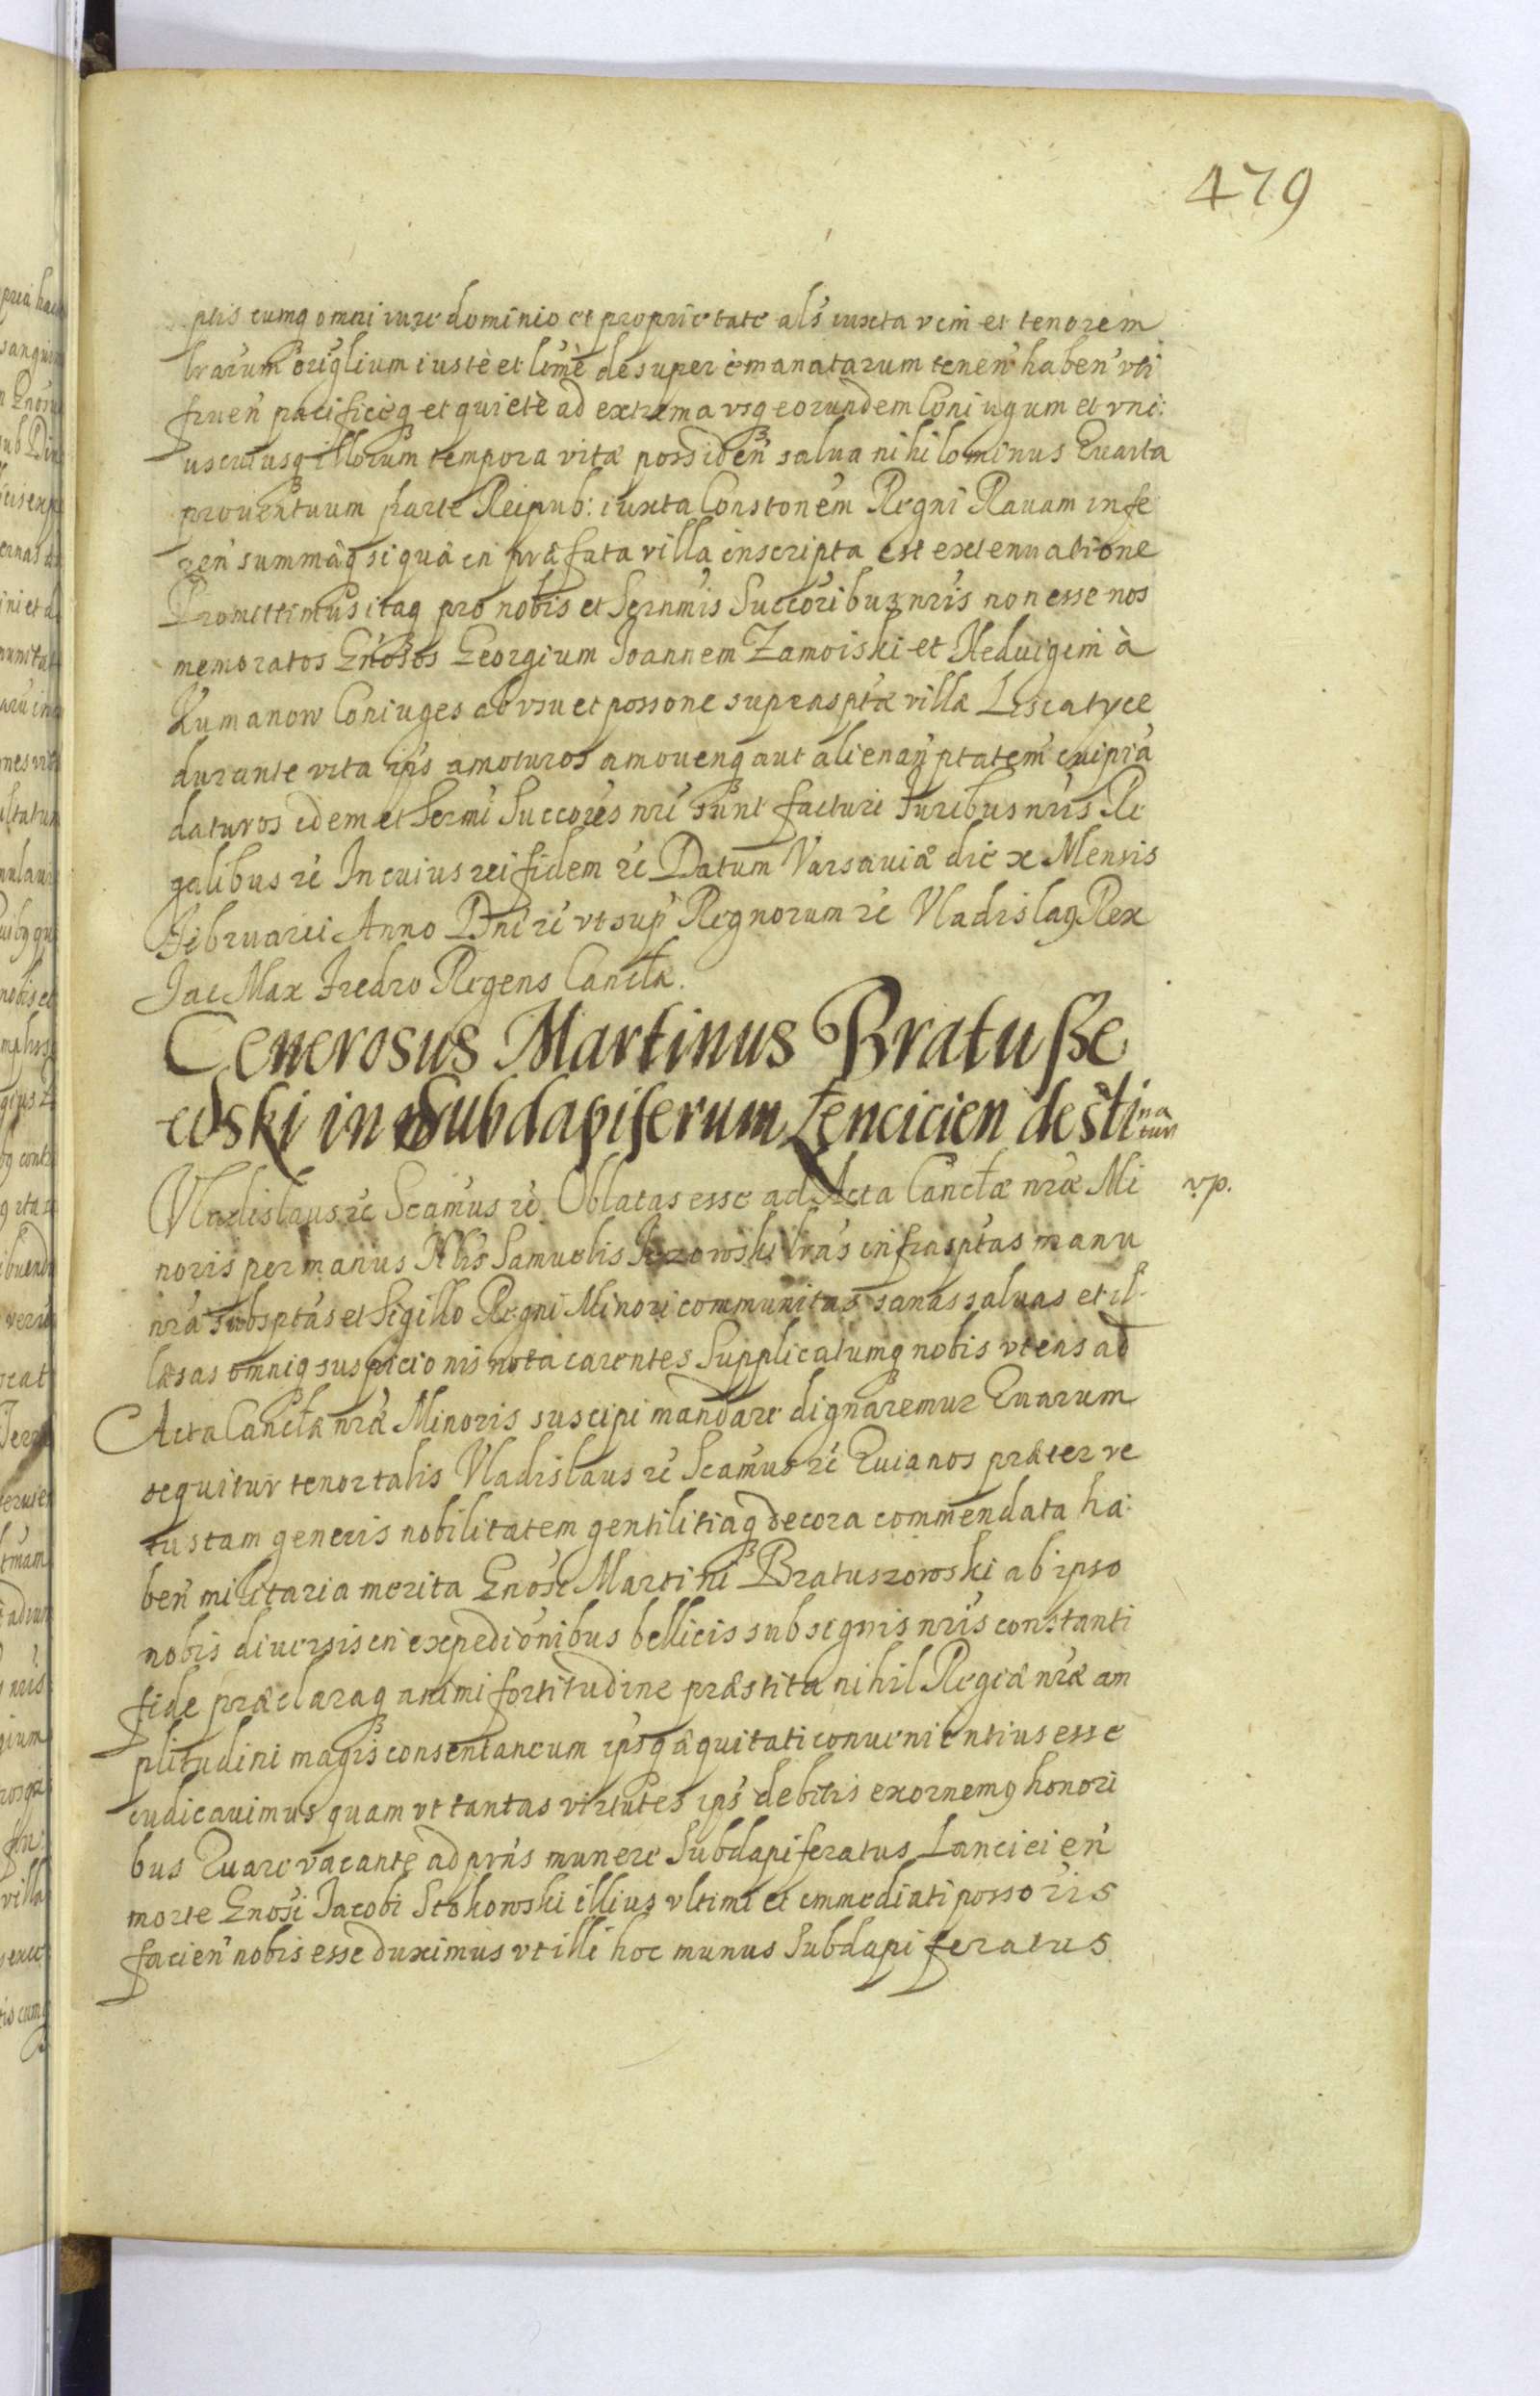 479
ptis cumq omni iure dominio et proprietate als iuxta vim et tenorem
lrarum origlium iustè et ltmè desuper emanatarum tenen haben vti
fruen pacificèq et quietè ad extrema vsq eorundem Coniugum et vni:
uscuiusq illorum tempora vitæ possiden salua nihilominus Quarta
prouentuum parte Reipub: iuxta Constonem Regni Rauam infe
ren summâq si quâ in præfata villa inscripta est extenuatione
Promittimus itaq pro nobis et Sernmis Succoribuz nris non esse nos
memoratos Gnosos Georgium Joannem Zamoiski et Heduigim à
Kumanow Coniuges ab vsu et possone supraspta villa Liscatyce
durante vita ips amoturos amouenq aut alienan ptatem cuipiâ
daturos idem et Sermi Succores nri sunt facturi Juribus nris Re
galibus rc In cuius rei fidem rc Datum Varsauiæ die x Mensis
Februarii Anno Dni rc vt sup Regnorum rc Vladislag Rex
Jac Max Fredro Regens Canclæ.
Generosus Martinus Bratusze
wski in Subdapiferum Lencicien destina
tur
Vladislaus rc Scamus rc Oblatas esse ad Acta Canclæ nræ Mi
vp.
noris per manus Nblis Samuelis lras infrasptas manu
nrâ subsptas et Sigillo Regni Minori communitas sanas saluas et il-
læsas omniq suspicionis nota carentes Supplicatumq nobis vt eas ad
Acta Canclæ nræ Minoris suscipi mandare dignaremur Quarum
sequitur tenor talis Vladislaus rc Scamus rc Quianos præter ve
tustam generis nobilitatem gentilitiaq decora commendata ha:
ben militaria merita Gnosi Martini Bratuszowski ab ipso
nobis diuersis in expedionibus bellicis sub signis nris constanti
fide præclaraq animi fortitudine præstita nihil Regiæ nræ am
plitudini magis consentaneum ipsq æquitati conuenientius esse
iudicauimus quam vt tantas virtutes ips debitis exornemg honori
bus Quare vacante ad prns munere Subdapiferatus Lancicien
morte Gnosi Jacobi Stokowski illius vltimi et immediati possoris
facien nobis esse duximus vt illi hoc munus Subdapiferatus